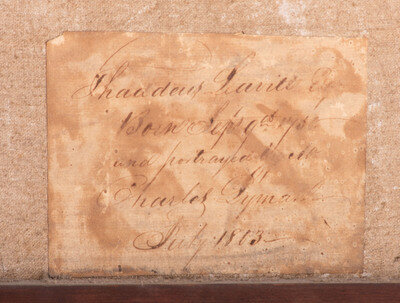 Thaddeus Leavitt Esq
Born Sept 9th 1750
and portrayed by Mr
Charles Lyman
July 1803